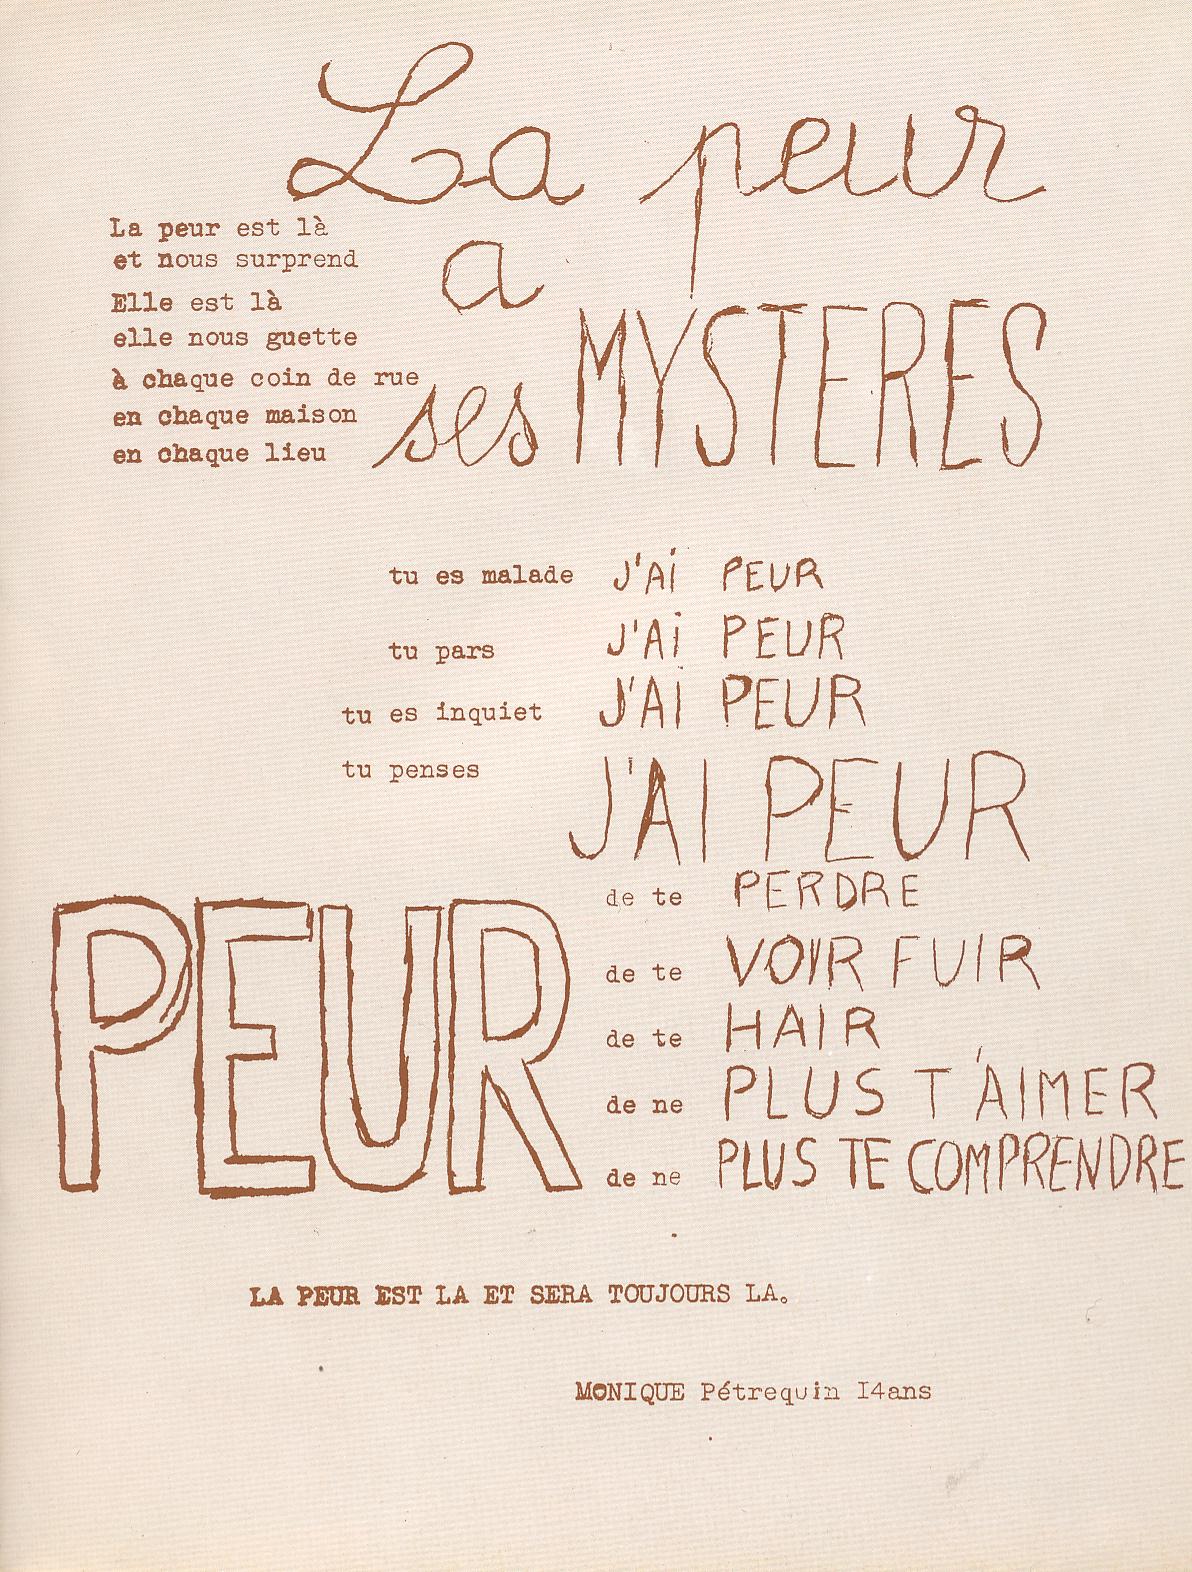 La peur
a
ses MYSTERES
La peur est là
et nous surprend
Elle est là
elle nous guette
à chaque coin de rue
en chaque maison
en chaque lieu
tu es malade J'Ai PEUR
tu pars J'Ai PEUR
tu es inquiet J'AI PEUR
tu penses J'AI PEUR
PEUR
de te PERDRE
de te VOIR FUIR
de te HAIR
de ne PLUS T'AIMER
de ne PLUS TE COMPRENDRE
LA PEUR EST LA ET SERA TOUJOURS LA.
MONIQUE Pétrequin I4ans